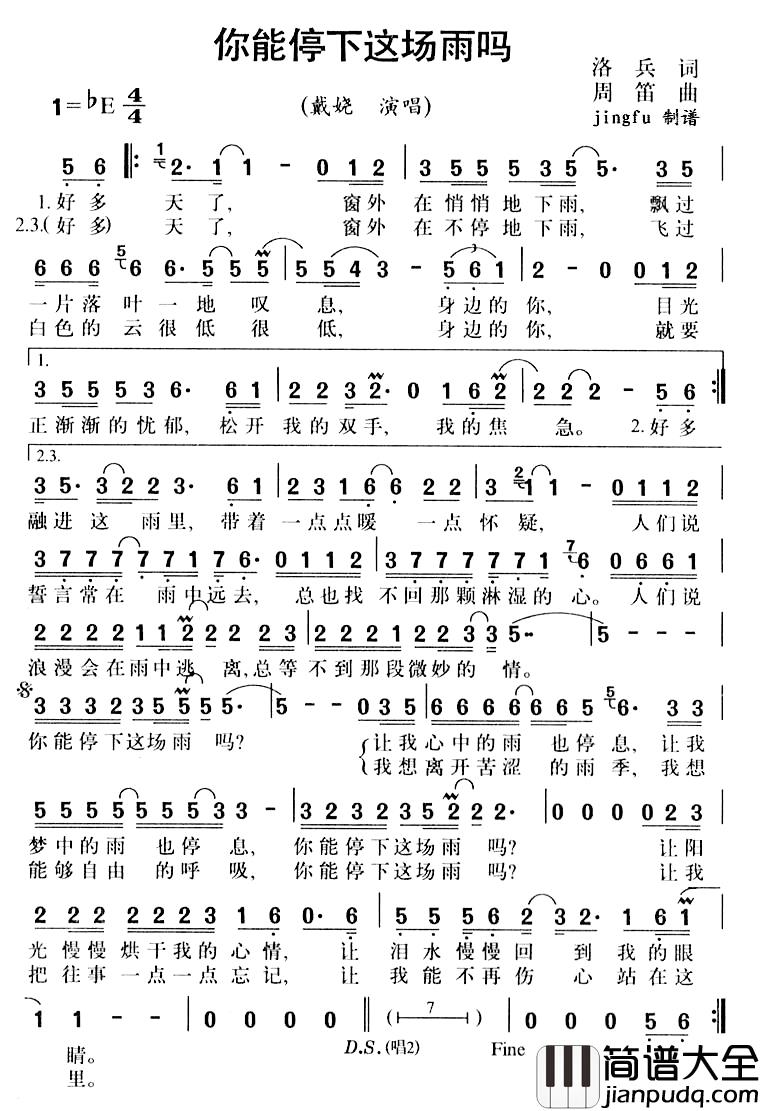 你能停下这场雨吗
洛 兵 词
1=♭E 4/4
(戴娆 演唱)
周 笛 曲
jingfu 制谱
5 6 ‖: 1 2· 1 1 - 0 1 2 | 3 5 5 5 3 5 5· 3 5
1.好多 天了, 窗外 在悄悄地下雨, 飘过
2.3.(好多) 天了, 窗外 在不停地下雨, 飞过
6 6 6 5 6 6· 5 5 5 | 5 5 4 3 - 5 6 1 | 2 - 0 0 1 2
一片落 叶一地 叹 息, 身边的 你, 日光
白色的 云很低 很 低, 身边的 你, 就要
1.
3 5 5 5 3 6· 6 1 | 2 2 3 2· 0 1 6 2 | 2 2 2 - 5 6 :‖
正渐渐的忧郁, 松开 我的双手, 我的焦 急。 2.好多
2.3.
3 5· 3 2 2 3· 6 1 | 2 3 1 6 6 2 2 | 3 2 1 1 - 0 1 1 2
融进这 雨里, 带着 一点点暖 一点 怀疑, 人们说
3 7 7 7 7 7 7 1 7 6· 0 1 1 2 | 3 7 7 7 7 7 7 1 7 6 0 6 6 1
誓言常在 雨中远去, 总也找 不回那颗淋湿的 心。 人们说
2 2 2 2 2 1 1 2 2 2 2 3 | 1 2 2 2 1 2 2 3 3 5·· | 5 - -
浪漫会在雨中逃 离,总等 不到那段微妙的 情。
3 3 3 2 3 5 5 5 5· | 5 - - 0 3 5 | 6 6 6 6 6 6 6 5 5 6· 3 3
你能停下这场雨 吗? 让我 心中的雨 也停息, 让我
我想 离开苦涩 的雨季, 我想
5 5 5 5 5 5 5 3 3 3 - | 3 2 3 2 3 5 2 2 2· | 0 0 0 0 2 3
梦中的雨 也停 息, 你能停下这场雨 吗? 让阳
能够自由 的呼 吸, 你能停下这场雨 吗? 让我
2 2 2 2 2 2 3 1 6 0· 6 | 5 5 5 6 2 3 2· 1 6 1
光慢慢 烘干我的心情, 让 泪水慢慢回 到 我的眼
把往事 一点一点忘记, 让 我能不再伤 心 站在这
1 1 - - | 0 0 0 0 ‖ ( 7 ) ‖ 0 0 0 5 6 :‖
睛。 D.S.(唱2) Fine
里。
简谱大全
jianpudq.com